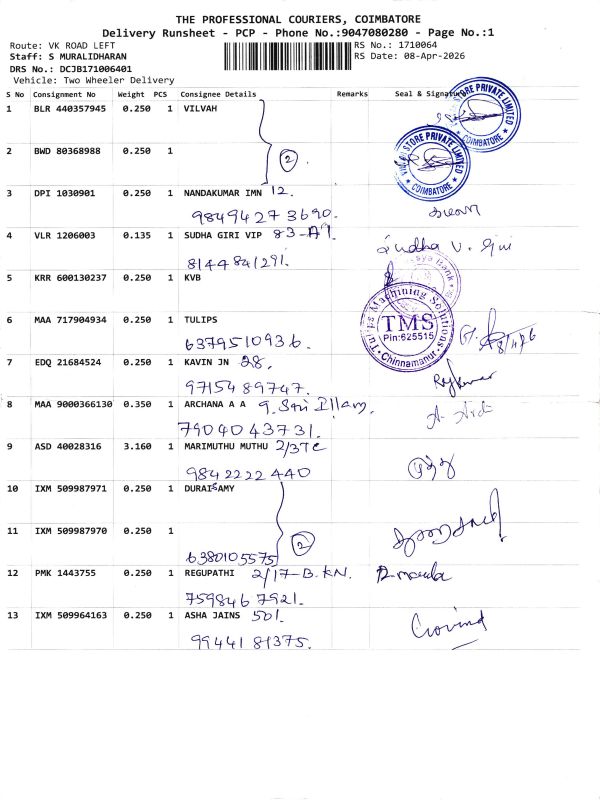 THE PROFESSIONAL COURIERS, COIMBATORE
Delivery Runsheet - PCP - Phone No.:9047080280 - Page No.:1
Route: VK ROAD LEFT
RS No.: 1710064
Staff: S MURALIDHARAN
RS Date: 08-Apr-2026
DRS No.: DCJB171006401
Vehicle: Two Wheeler Delivery
S No Consignment No Weight PCS Consignee Details Remarks Seal & Signature
1 BLR 440357945 0.250 1 VILVAH
STORE PRIVATE LIMITED
COIMBATORE
2 BWD 80368988 0.250 1
2
STORE PRIVATE LIMITED
COIMBATORE
3 DPI 1030901 0.250 1 NANDAKUMAR IMN 12.
9849427 3690.
4 VLR 1206003 0.135 1 SUDHA GIRI VIP 83-A1
Sudha V. Giri
8144841291.
5 KRR 600130237 0.250 1 KVB
Bank
6 MAA 717904934 0.250 1 TULIPS
6379510936.
Tulips Machining Solutions
TMS
Pin:625515
Chinnamanur
8/4/26
7 EDQ 21684524 0.250 1 KAVIN JN 28.
9715489747.
Rajkumar
8 MAA 9000366130 0.350 1 ARCHANA A A 9. Sri Illam.
7904043731.
9 ASD 40028316 3.160 1 MARIMUTHU MUTHU 2/37C
9842222440
10 IXM 509987971 0.250 1 DURAISAMY
11 IXM 509987970 0.250 1
2
6380105575
12 PMK 1443755 0.250 1 REGUPATHI 2/17-B.KN.
7598467921.
13 IXM 509964163 0.250 1 ASHA JAINS 501.
Govind
9944181375.